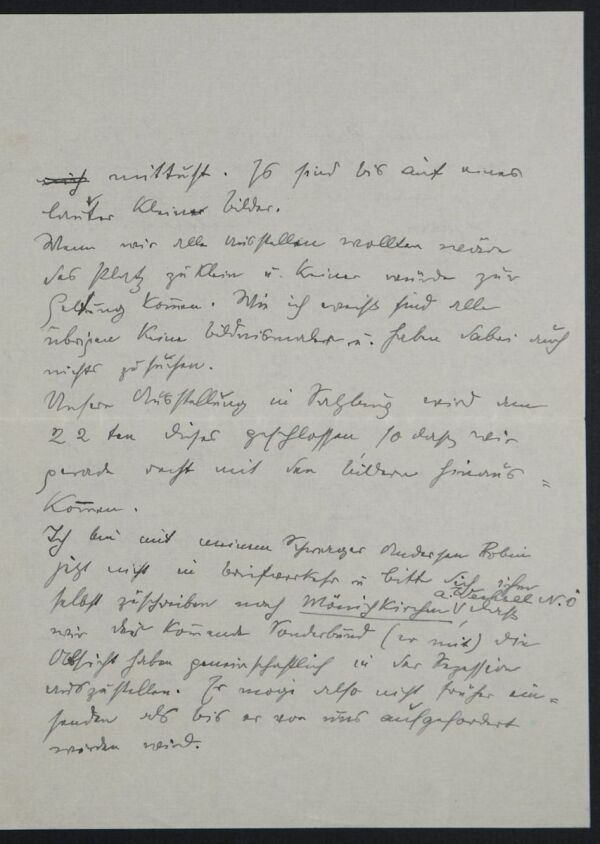 mich mittust. Es sind bis auf eines
lauter kleine Bilder.
Wenn wir alle ausstellen wollten wäre
das Platz zu klein u. keiner würde zur
Geltung kommen. Wie ich weiß sind alle
übrigen keine Bildnismaler u. haben dabei auch
nichts zu suchen.
Unsere Ausstellung in Salzburg wird am
22 ten dieses geschlossen, so daß wir
gerade recht mit den Bildern hinaus=
kommen.
Ich bin mit meinem Schwager Andersen Robin
jetzt nicht in Briefverkehr u bitte Dich ihm
selbst zuschreiben nach Mönichkirchen a. Wechsel N.Ö daß
wir der kommende Sonderbund (er mit) die
Absicht haben gemeinschaftlich in der Sezession
auszustellen. Er möge also nicht früher ein=
senden als bis er von uns aufgefordert
werden wird.